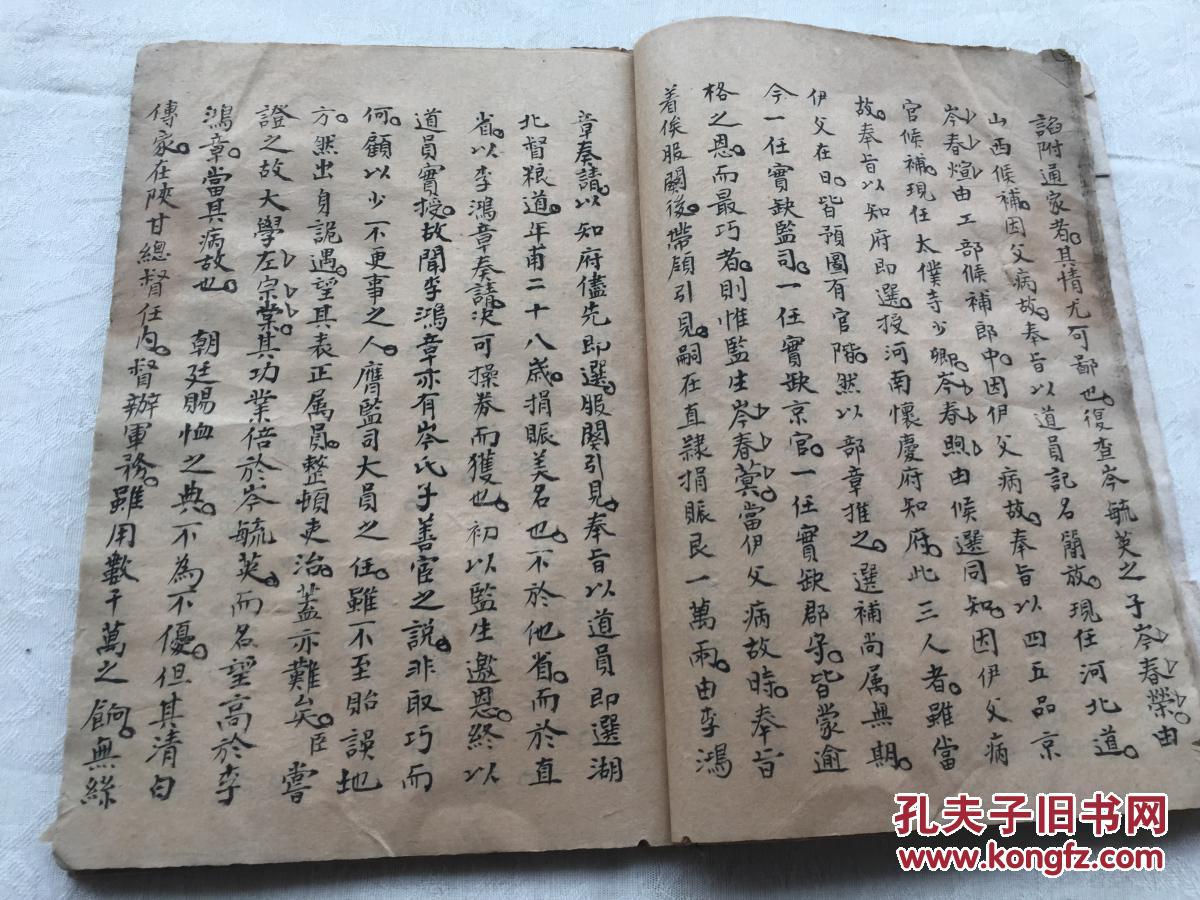 諂附通家者其情尤可鄙也復查岑毓英之子岑春榮由
山西候補因父病故奉旨以道員記名簡放現任河北道
岑春煊由工部候補郎中因伊父病故奉旨以四五品京
官候補現任太僕寺少卿岑春煦由候選同知因伊父病
故奉旨以知府即選授河南懷慶府知府此三人者雖當
伊父在日皆預圖有官階然以部章推之選補尚属無期
今一任實缺監司一任實缺京官一任實缺郡守皆蒙逾
格之恩而最巧者則惟監生岑春蓂當伊父病故時奉旨
着俟服闋後帶領引見嗣在直隸捐賑艮一萬兩由李鴻
章奏請以知府儘先即選服闋引見奉旨以道員即選湖
北督粮道年甫二十八歲捐賑美名也不於他省而於直
省以李鴻章奏請決可操券而獲也初以監生邀恩終以
道員實授故聞李鴻章亦有岑氏子善宦之說非取巧而
何顧以少不更事之人膺監司大員之任雖不至貽誤地
方然出身詭遇望其表正属員整頓吏治蓋亦難矣臣嘗
證之故大學左宗棠其功業倍於岑毓英而名望高於李
鴻章當其病故也 朝廷賜恤之典不為不優但其清白
傳家在陝甘總督任內督辦軍務雖用數千萬之餉無絲
孔夫子旧书网
www.kongfz.com